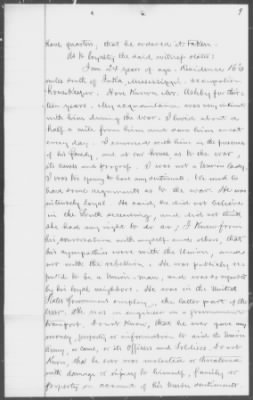 9
have quarters, that he ordered it taken.
As to loyalty the said witness states:
I am 24 years of age. Residence 16 6
miles south of Iuka, Mississippi. occupation
Housekeeper. Have known Mr. Ashby for thir-
teen years. My acquaintance was very intimate
with him during the war. I lived about a
half a mile from him and saw him most
every day. I conversed with him in the presence
of his family, and at our house as to the war,
its causes and progress. I was not a Union lady,
I was too young to have any sentiments. We used to
have some arguments as to the war. He was
entirely loyal. He said, he did not believe
in the south seceding, and did not think
she had any right to do so; I know from
his conversation with myself and others, that
his sympathies were with the Union, and
not with the rebellion. He was publicly re-
puted to be a Union man, and was so reported
by his loyal neighbors. He was in the United
States Government employ, the latter part of the
war. He was an engineer on a government
transport. I do not know, that he ever gave any
money, property or information to aid the Union
Army, or cause, or its Officers and Soldiers. I do not
know, that he ever was molested or threatened
with damage or injury to himself, family or
property on account of his Union sentiments.